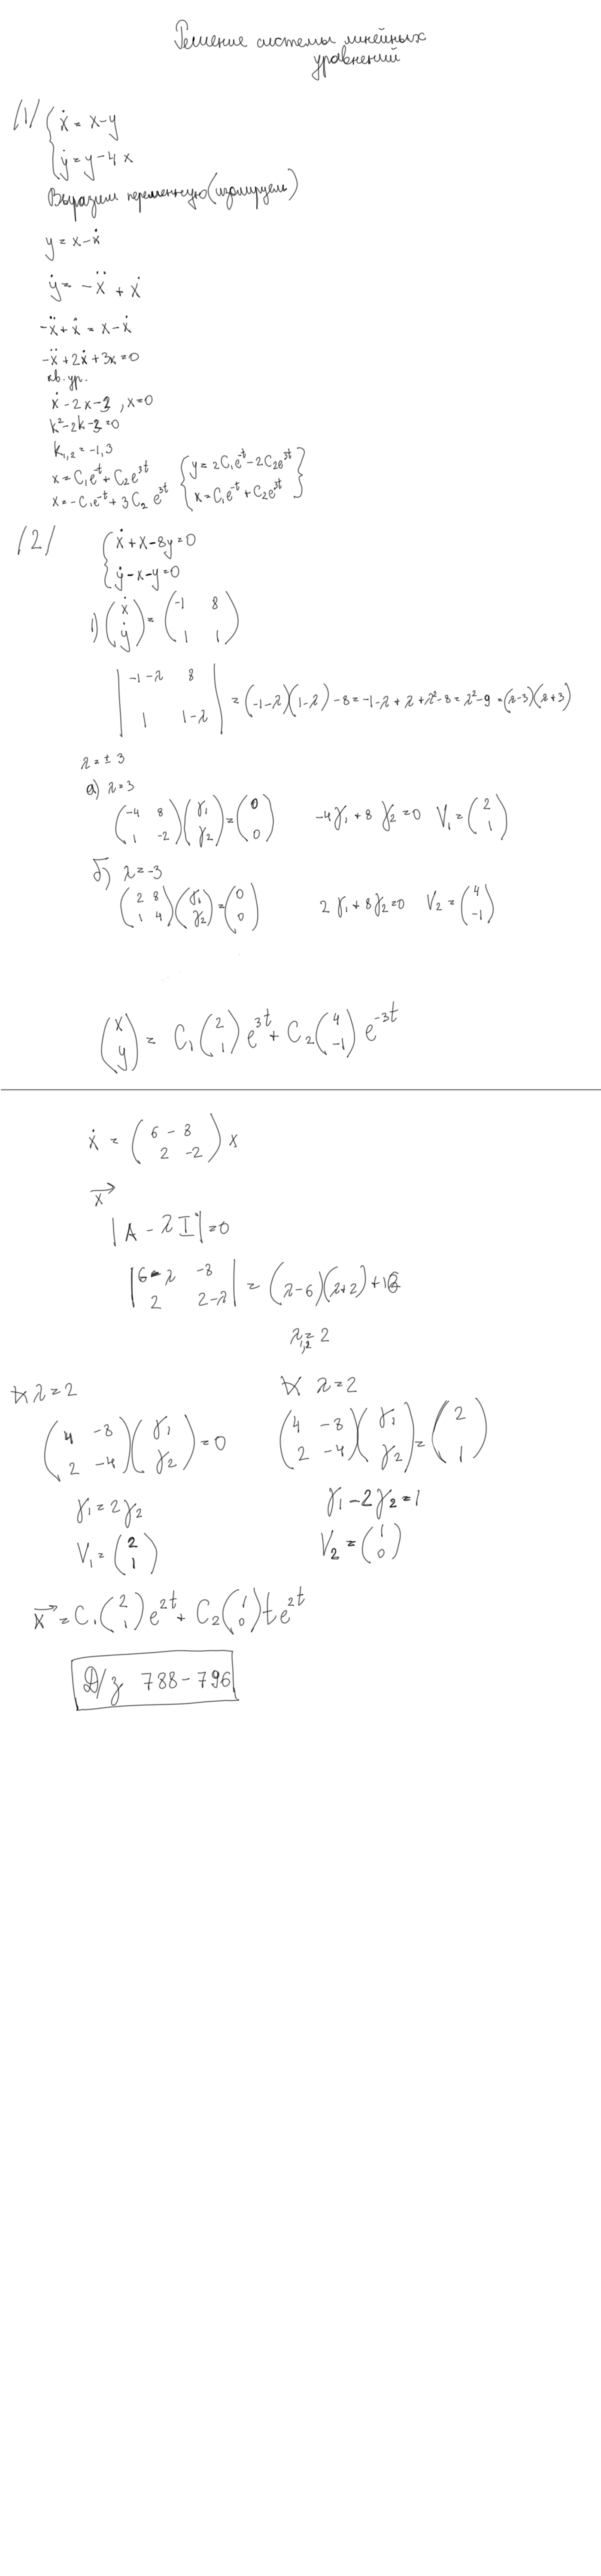 Решение системы линейных
уравнений
/1/ { ẋ = x-y
ẏ = y-4x
Выразим переменную (изолируем)
y = x-ẋ
ẏ = -ẍ + ẋ
-ẍ+ẋ = x-ẋ
-ẍ+2ẋ+3x=0
кв. ур.
ẋ-2x-3, x=0
k²-2k-3=0
k₁,₂ = -1,3
x = C₁e^-t + C₂e^3t { y = 2C₁e^-t - 2C₂e^3t
x = -C₁e^-t + 3C₂ e^3t x = C₁e^-t + C₂e^3t }
/2/ { ẋ+x-8y=0
ẏ-x-y=0
1) (ẋ ẏ) = (-1 8
1 1)
|-1-λ 8
1 1-λ| = (-1-λ)(1-λ)-8 = -1-λ+λ+λ²-8 = λ²-9 = (λ-3)(λ+3)
λ = ± 3
а) λ=3
(-4 8
1 -2)(γ₁ γ₂) = (0 0) -4γ₁+8γ₂=0 V₁ = (2 1)
б) λ=-3
(2 8
1 4)(γ₁ γ₂) = (0 0) 2γ₁+8γ₂=0 V₂ = (4 -1)
(x y) = C₁(2 1)e^3t + C₂(4 -1)e^-3t
ẋ = (6 -8
2 -2)x
x⃗
|A - λI|=0
|6-λ -8
2 2-λ| = (λ-6)(λ+2)+16
λ₁,₂ = 2
λ=2 λ=2
(4 -8
2 -4)(γ₁ γ₂) = 0 (4 -8
2 -4)(γ₁ γ₂) = (2 1)
γ₁=2γ₂ γ₁-2γ₂=1
V₁ = (2 1) V₂ = (1 0)
x⃗ = C₁(2 1)e^2t + C₂(1 0)te^2t
Д/з 788-796